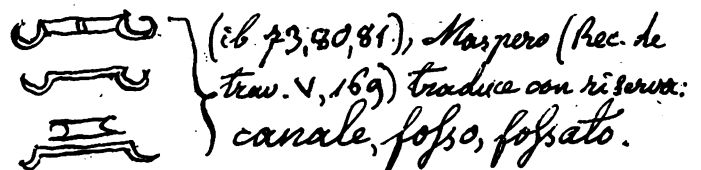 (ib 73,80,81.), Maspero (Rec. de
trav. V, 169) traduce con riserva:
canale, fosso, fossato.